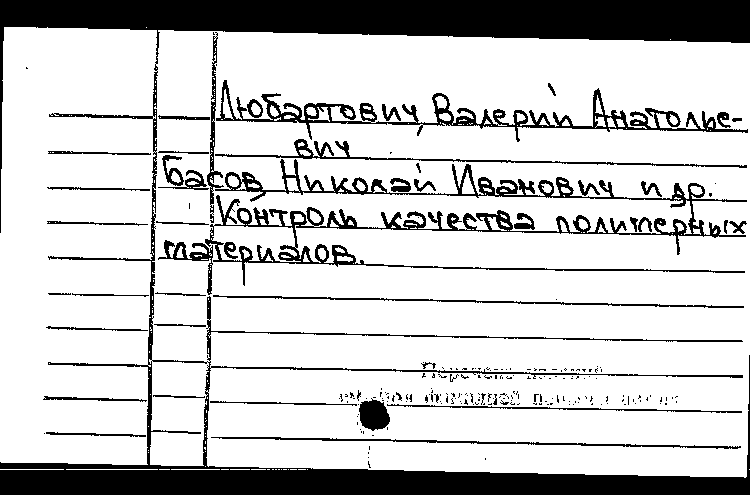 Любартович, Валерий Анатолье-
вич
Басов, Николай Иванович и др.
Контроль качества полимерных
материалов.
Перечень изданий